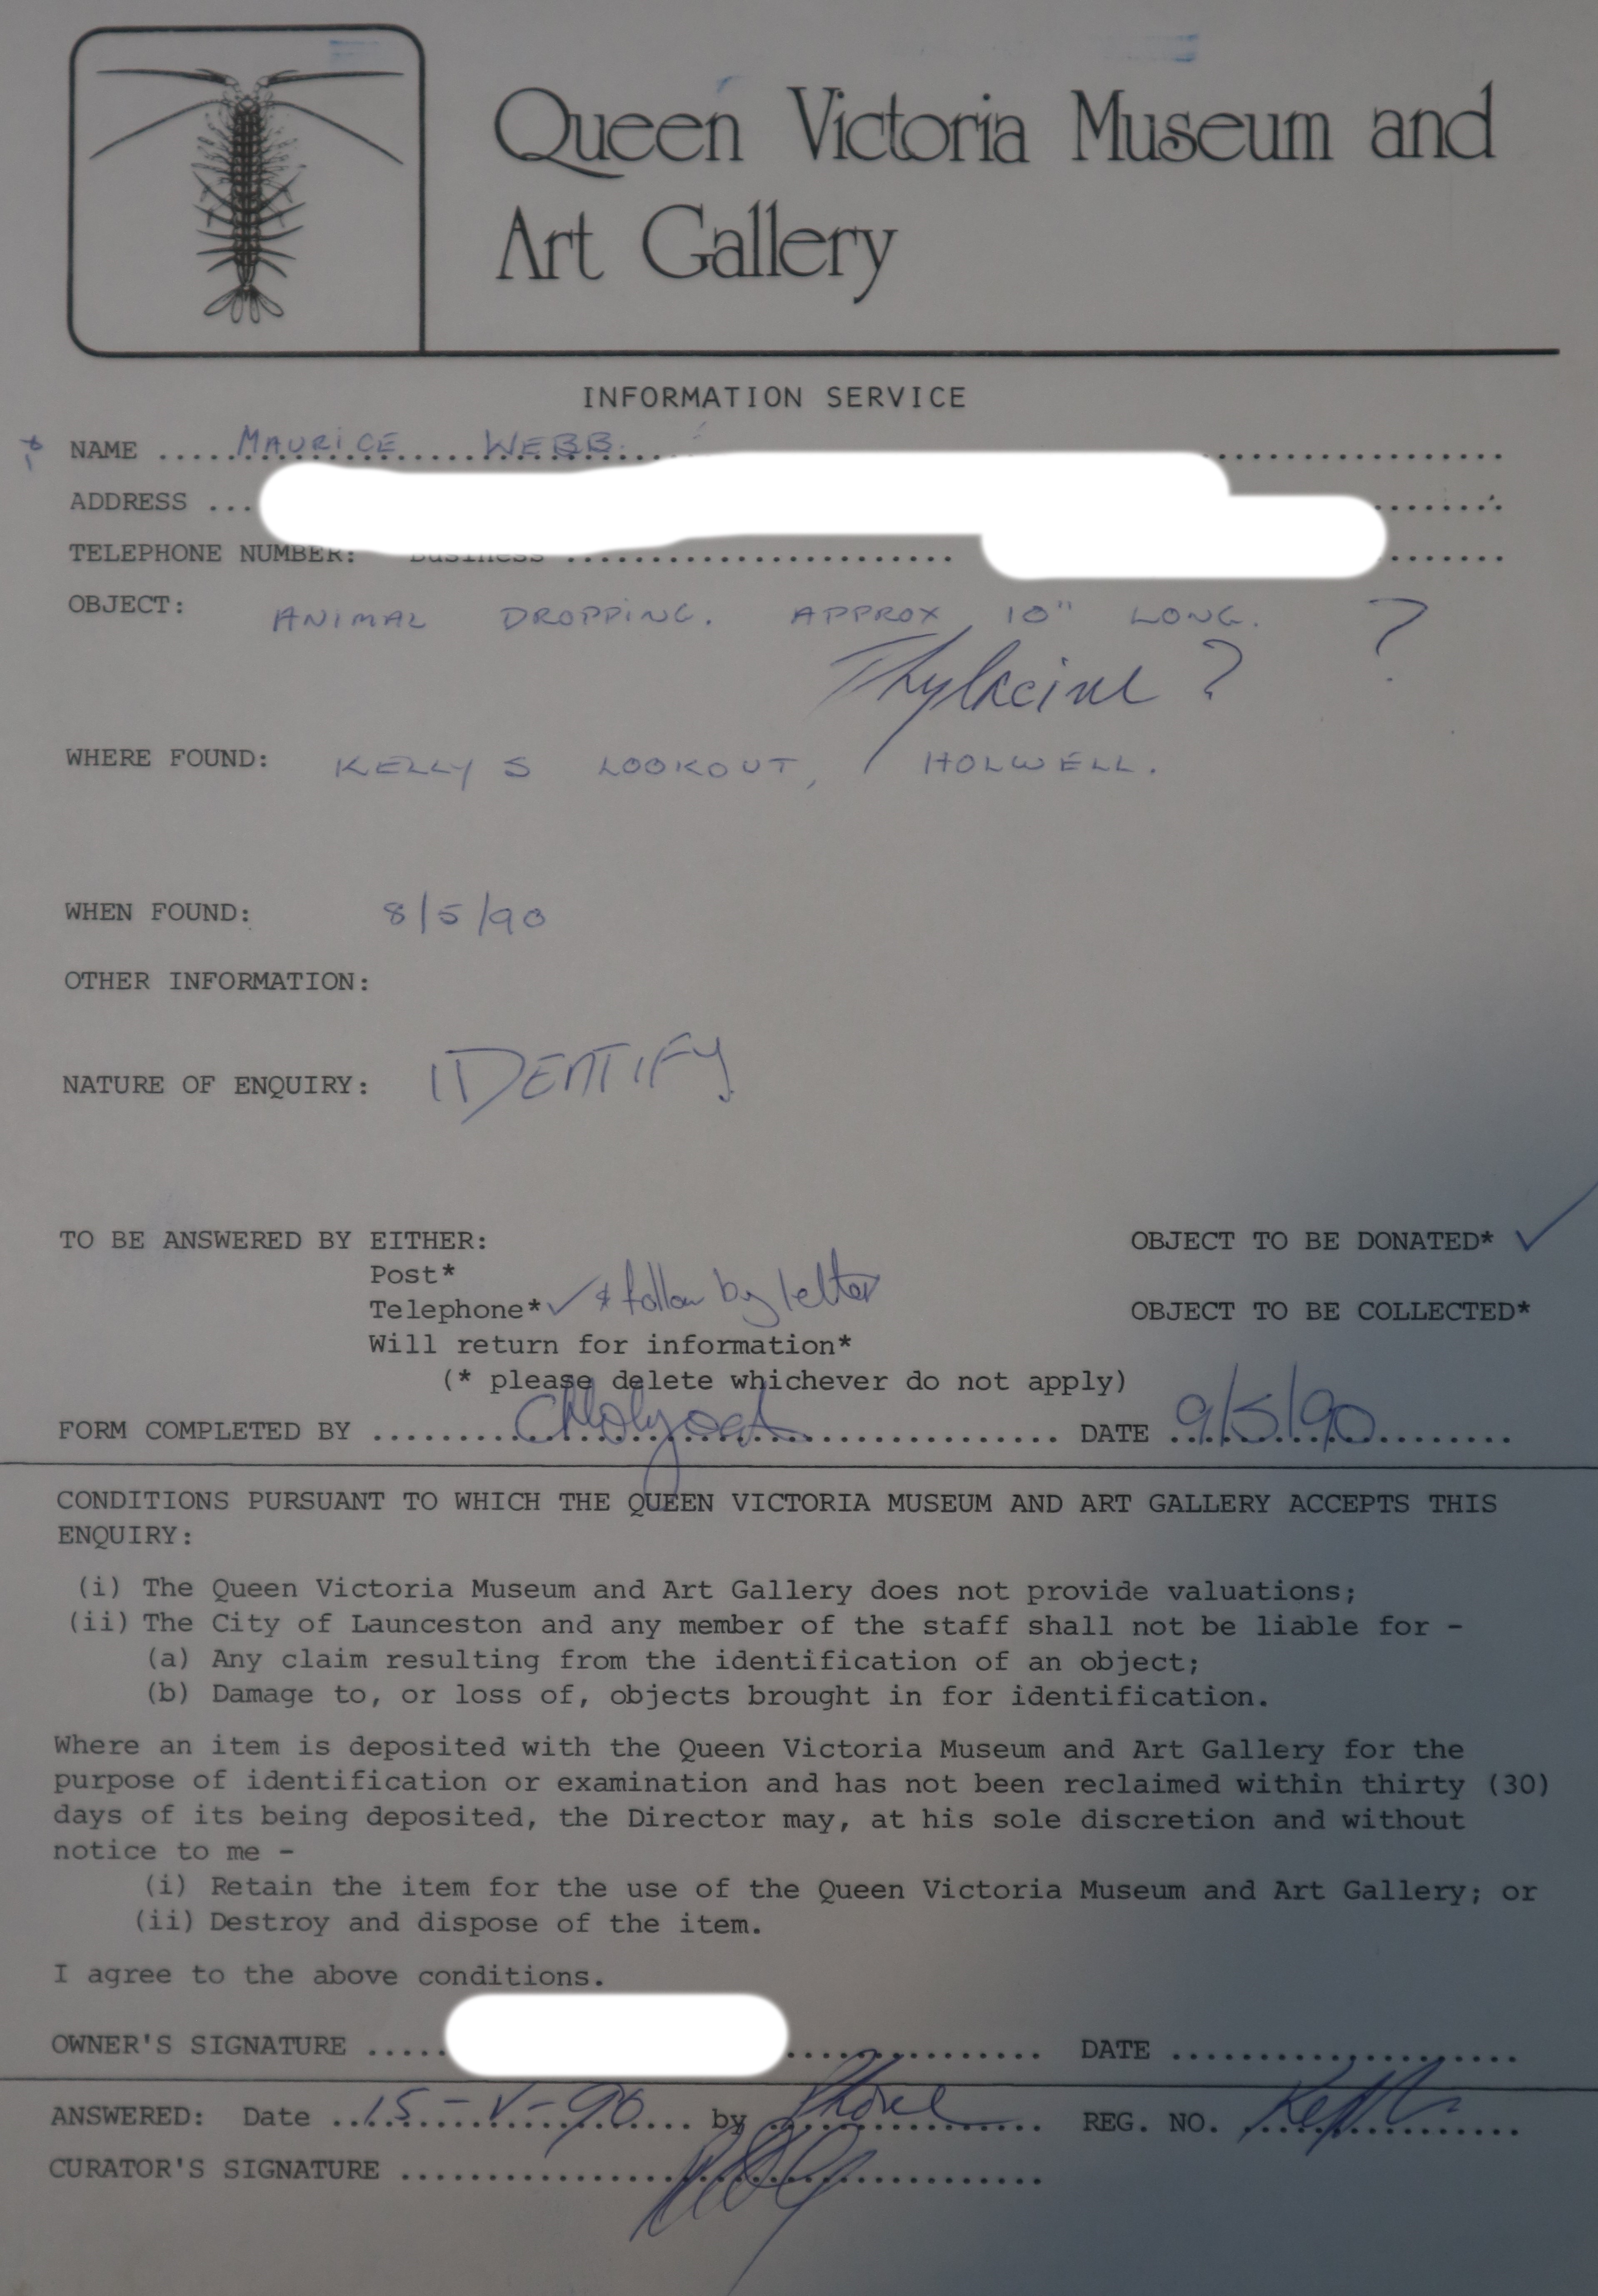 Queen Victoria Museum and
Art Gallery
INFORMATION SERVICE
NAME .... MAURICE WEBB. ....
ADDRESS ...
TELEPHONE NUMBER: Business ....
OBJECT: ANIMAL DROPPING. APPROX 10" LONG. ?
Thylacine ?
WHERE FOUND: KELLY S LOOKOUT, HOLWELL.
WHEN FOUND: 8/5/90
OTHER INFORMATION:
NATURE OF ENQUIRY: IDENTIFY
TO BE ANSWERED BY EITHER: OBJECT TO BE DONATED* ✓
Post*
Telephone* ✓ & follow by letter OBJECT TO BE COLLECTED*
Will return for information*
(* please delete whichever do not apply)
FORM COMPLETED BY .... DATE 9/5/90
CONDITIONS PURSUANT TO WHICH THE QUEEN VICTORIA MUSEUM AND ART GALLERY ACCEPTS THIS
ENQUIRY:
(i) The Queen Victoria Museum and Art Gallery does not provide valuations;
(ii) The City of Launceston and any member of the staff shall not be liable for -
(a) Any claim resulting from the identification of an object;
(b) Damage to, or loss of, objects brought in for identification.
Where an item is deposited with the Queen Victoria Museum and Art Gallery for the
purpose of identification or examination and has not been reclaimed within thirty (30)
days of its being deposited, the Director may, at his sole discretion and without
notice to me -
(i) Retain the item for the use of the Queen Victoria Museum and Art Gallery; or
(ii) Destroy and dispose of the item.
I agree to the above conditions.
OWNER'S SIGNATURE .... DATE ....
ANSWERED: Date 15-V-90 by Phone REG. NO. ....
CURATOR'S SIGNATURE ....